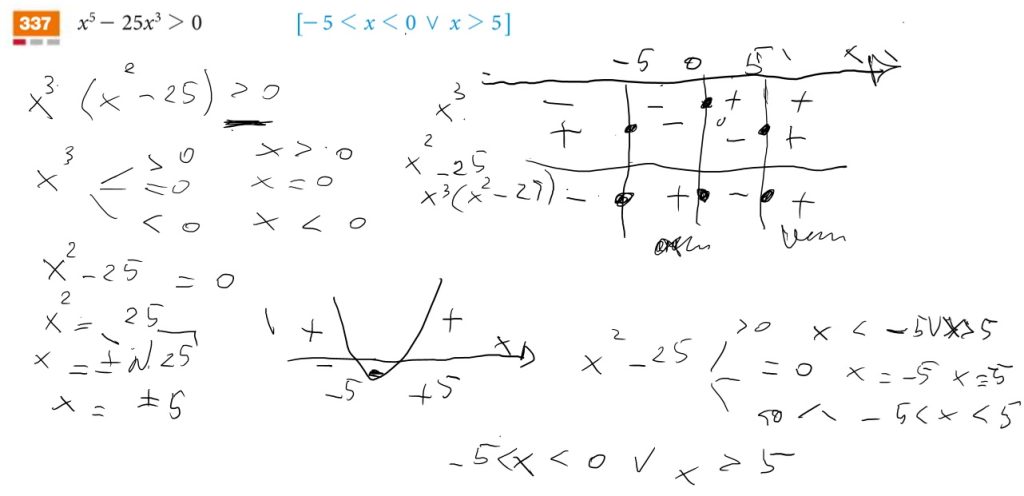 337 x⁵ − 25x³ > 0 [− 5 < x < 0 ∨ x > 5]
x³ (x² − 25) > 0
x³ > 0 x > 0
= 0 x = 0
< 0 x < 0
x² − 25 = 0
x² = 25
x = ± √25
x = ± 5
−5 0 5 x
x³ − − + +
x² − 25 + − − +
x³(x² − 25) − + − +
+ − + x
−5 +5
x² − 25 > 0 x < −5 ∨ x > 5
= 0 x = −5 x = 5
< − 5 < x < 5
− 5 < x < 0 ∨ x > 5